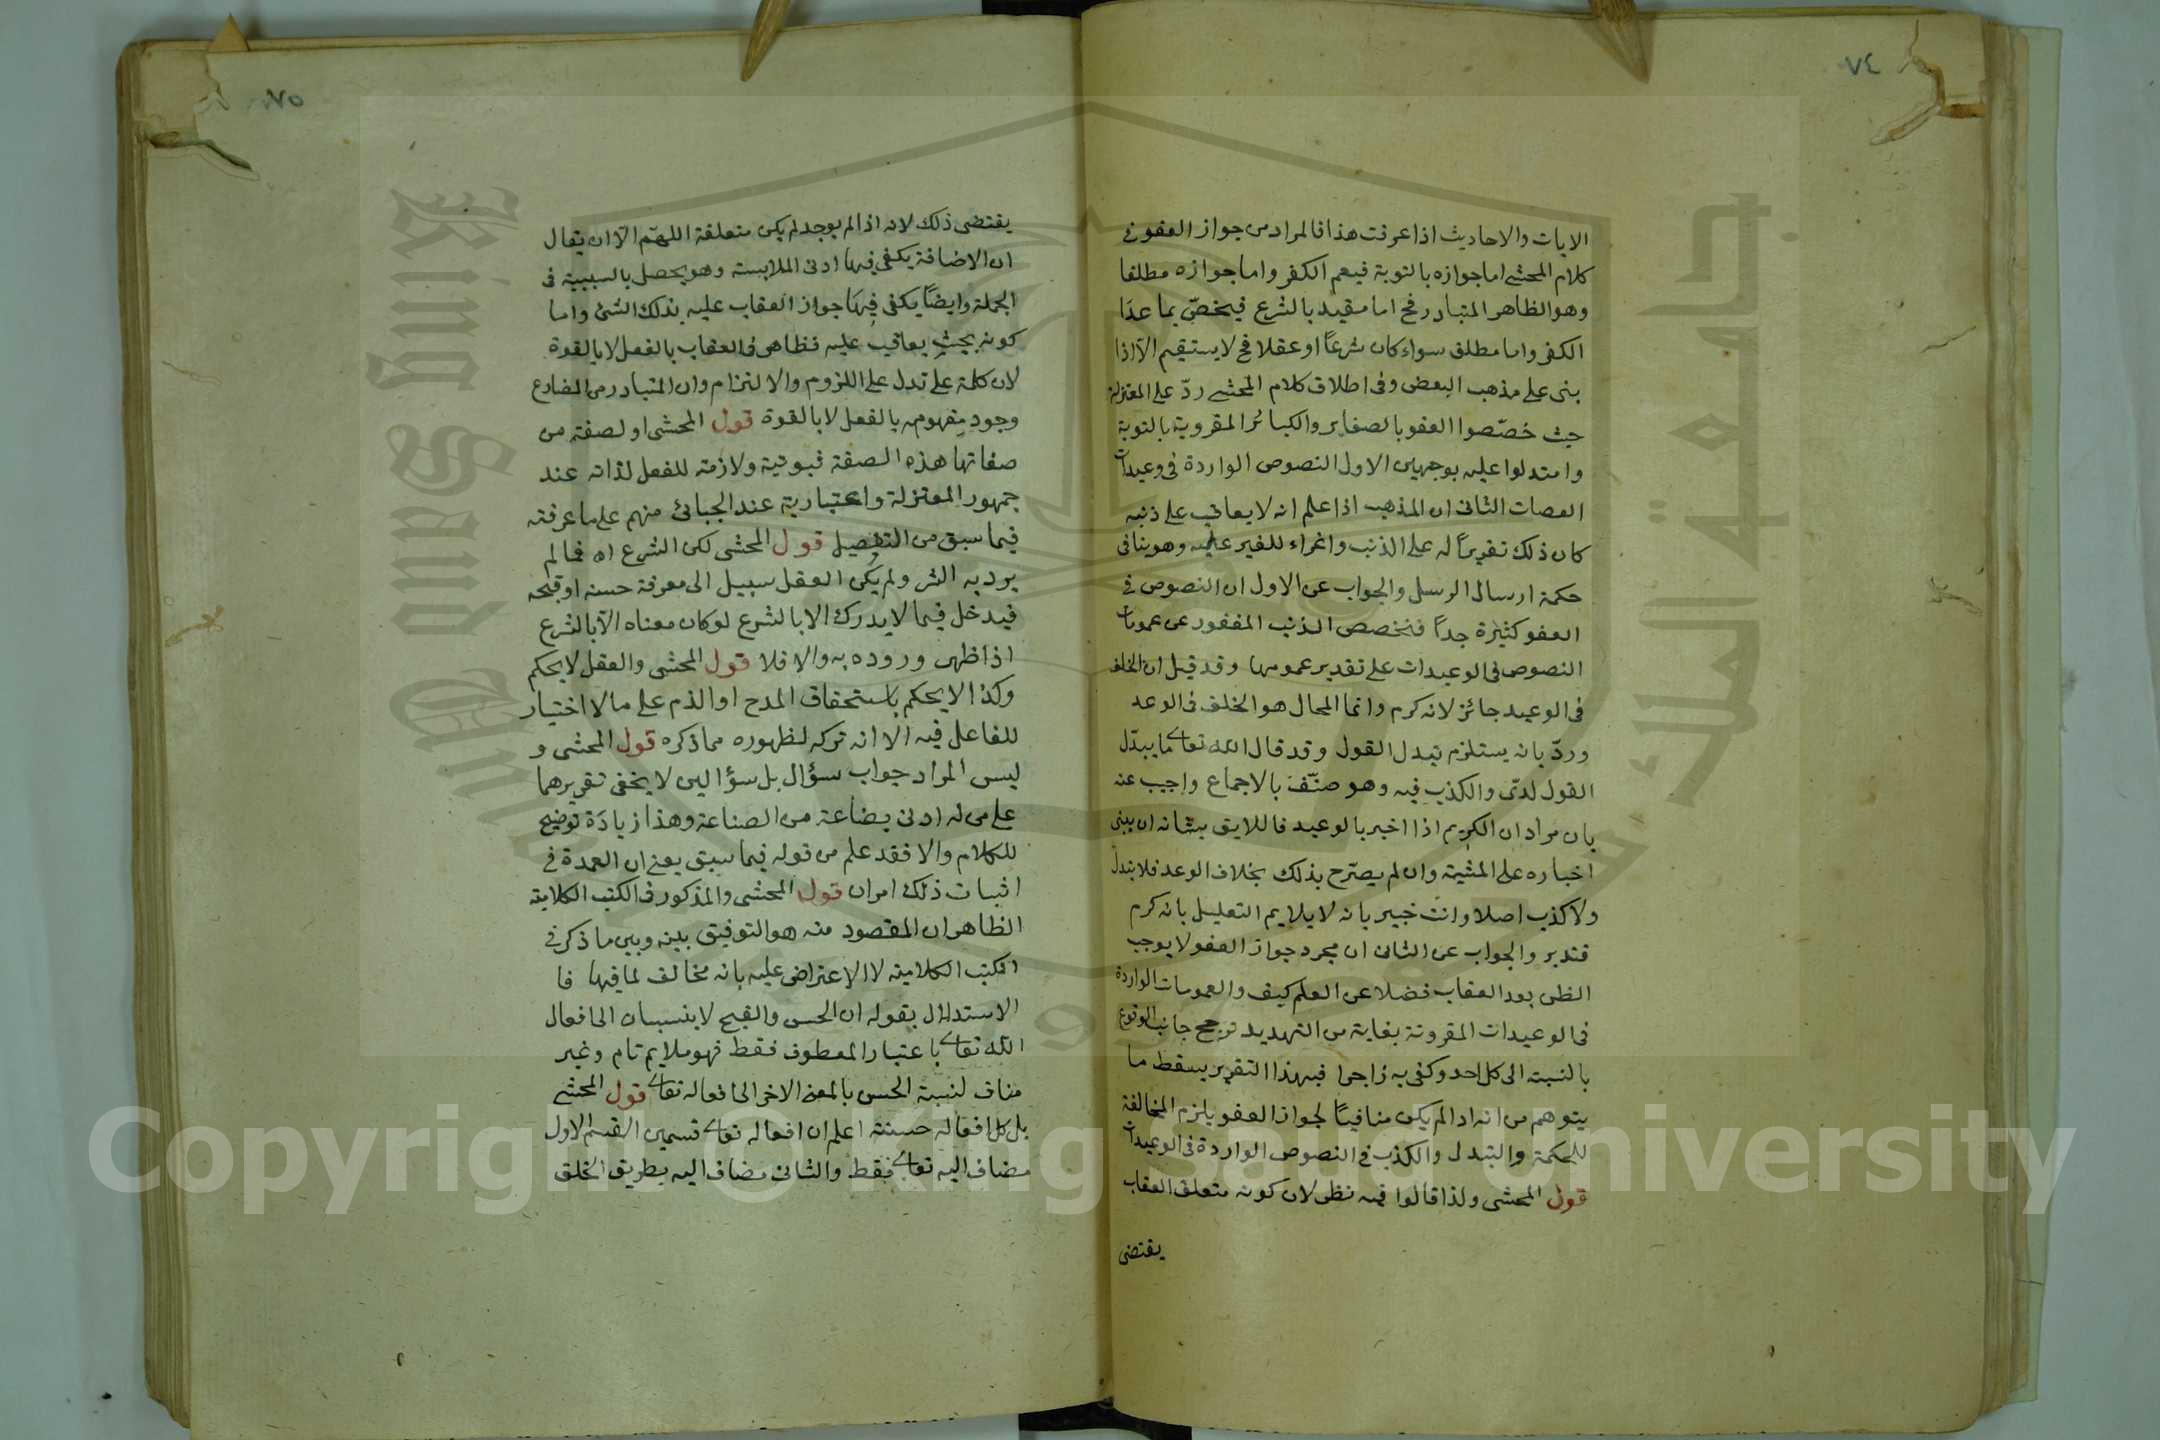 ٧٤
الايات والاحاديث اذا عرفت هذا فالمراد من جواز العفو في
كلام المحشي اما جوازه بالتوبة فيعم الكفر واما جوازه مطلقا
وهو الظاهر المتبادر فح اما مقيد بالشرع فيخصّ بما عدَا
الكفر واما مطلق سواء كان شرعاً او عقلا فح لا يستقيم الّا اذا
بنى على مذهب البعض وفى اطلاق كلام المحشے ردّ على المعتزلة
حيث خصّصوا العفو بالصغاير والكبائر المقرونة بالتوبة
وامتدلوا عليه بوجهين الاول النصوص الواردة فى وعيدات
العصات الثانى ان المذهب اذا علم انه لا يعاقب على ذنبه
كان ذلك تقريراً له على الذنب واغراء للغير عليه وهو ينافى
حكمة ارسال الرسل والجواب عن الاول ان النصوص في
العفو كثيرة جداً فنخصص الذنب المغفور عن عمومات
النصوص فى الوعيدات على تقدير عمومها وقد قيل ان الخلف
فى الوعيد جائز لانه كرم وانما المحال هو الخلف فى الوعد
وردّ بانه يستلزم تبدل القول وقد قال الله تعالى ما يبدّل
القول لدىّ والكذب فيه وهو منتف بالاجماع واجيب عنه
بان مراد ان الكريم اذا اخبر بالوعيد فاللايق بشانه ان يبنى
اخباره على المشية وان لم يصرّح بذلك بخلاف الوعد فلا تبدل
ولا كذب اصلا وانت خبير بانه لا يلايم التعليل بانه كرم
فتدبر والجواب عن الثانى ان مجرد جواز العفو لا يوجب
الظن بعد العقاب فضلا عن العلم كيف والعمومات الواردة
فى الوعيدات المقرونة بغاية من التهديد ترجح جانب الوقوع
بالنسبة الى كل احد وكفى به زاجرا فبهذا التقرير يسقط ما
يتوهم من انه اد الم يكن منافياً لجواز العفو يلزم المخالفة
للحكمة والتبدل والكذب فى النصوص الواردة فى الوعيدات
قول المحشى ولذا قالوا فيه نظر لان كونه متعلق العقاب
يقتضى
٧٥
يقتضى ذلك لانه اذا لم يوجد لم يكن متعلقة اللهمّ الّا ان يقال
ان الاضافة يكفى فيها ادنى الملابسة وهو يحصل بالسببية فى
الجملة وايضاً يكفى فيها جواز العقاب عليه بذلك الشئ واما
كونه بحيث يعاقب عليه فظاهر فى العقاب بالفعل لا بالقوة
لان كلمة على تدل على اللزوم والالتزام وان المتبادر من المضارع
وجود مفهومه بالفعل لا بالقوة قول المحشى او لصفة من
صفاتها هذه الصفة ثبوتية ولازمة للفعل لذاته عند
جمهور المعتزلة واعتبارية عند الجبائى منهم على ما عرفته
فيما سبق من التفصيل قول المحشى لكن الشرع اه فما لم
يرد به الشر ولم يكن العقل سبيل الى معرفة حسنه او قبحه
فيدخل فيما لا يدرك الا بالشرع لو كان معناه الّا بالشرع
اذا ظهر وروده به والا فلا قول المحشى والعقل لا يحكم
وكذا لا يحكم باستحقاق المدح او الذم على ما لا اختيار
للفاعل فيه الا انه تركه لظهوره مما ذكره قول المحشى و
ليس المراد جواب سؤال بل سؤالين لا يخفى تقريرهما
على من له ادنى بضاعة من الصناعة وهذا زيادة توضيح
للكلام والا فقد علم من قوله فيما سبق يعنى ان العمدة في
اثبات ذلك امران قول المحشى والمذكور فى الكتب الكلامية
الظاهر ان المقصود منه هو التوفيق بينه وبين ما ذكر في
الكتب الكلامية لا الاعتراض عليه بانه مخالف لما فيها فا
الاستدلال بقوله ان الحسن والقبح لا ينسبان الى افعال
الله تعالى باعتبار المعطوف فقط فهو ملايم تام وغير
مناف لنسبة الحسن بالمعنى الاخر الى افعاله تعالى قول المحشے
بل كل افعاله حسنة اعلم ان افعاله تعالى قسمين القسم الاول
مضاف اليه تعالى فقط والثانى مضاف اليه بطريق الخلق
King Saud University
جامعة الملك سعود
Copyright © King Saud University